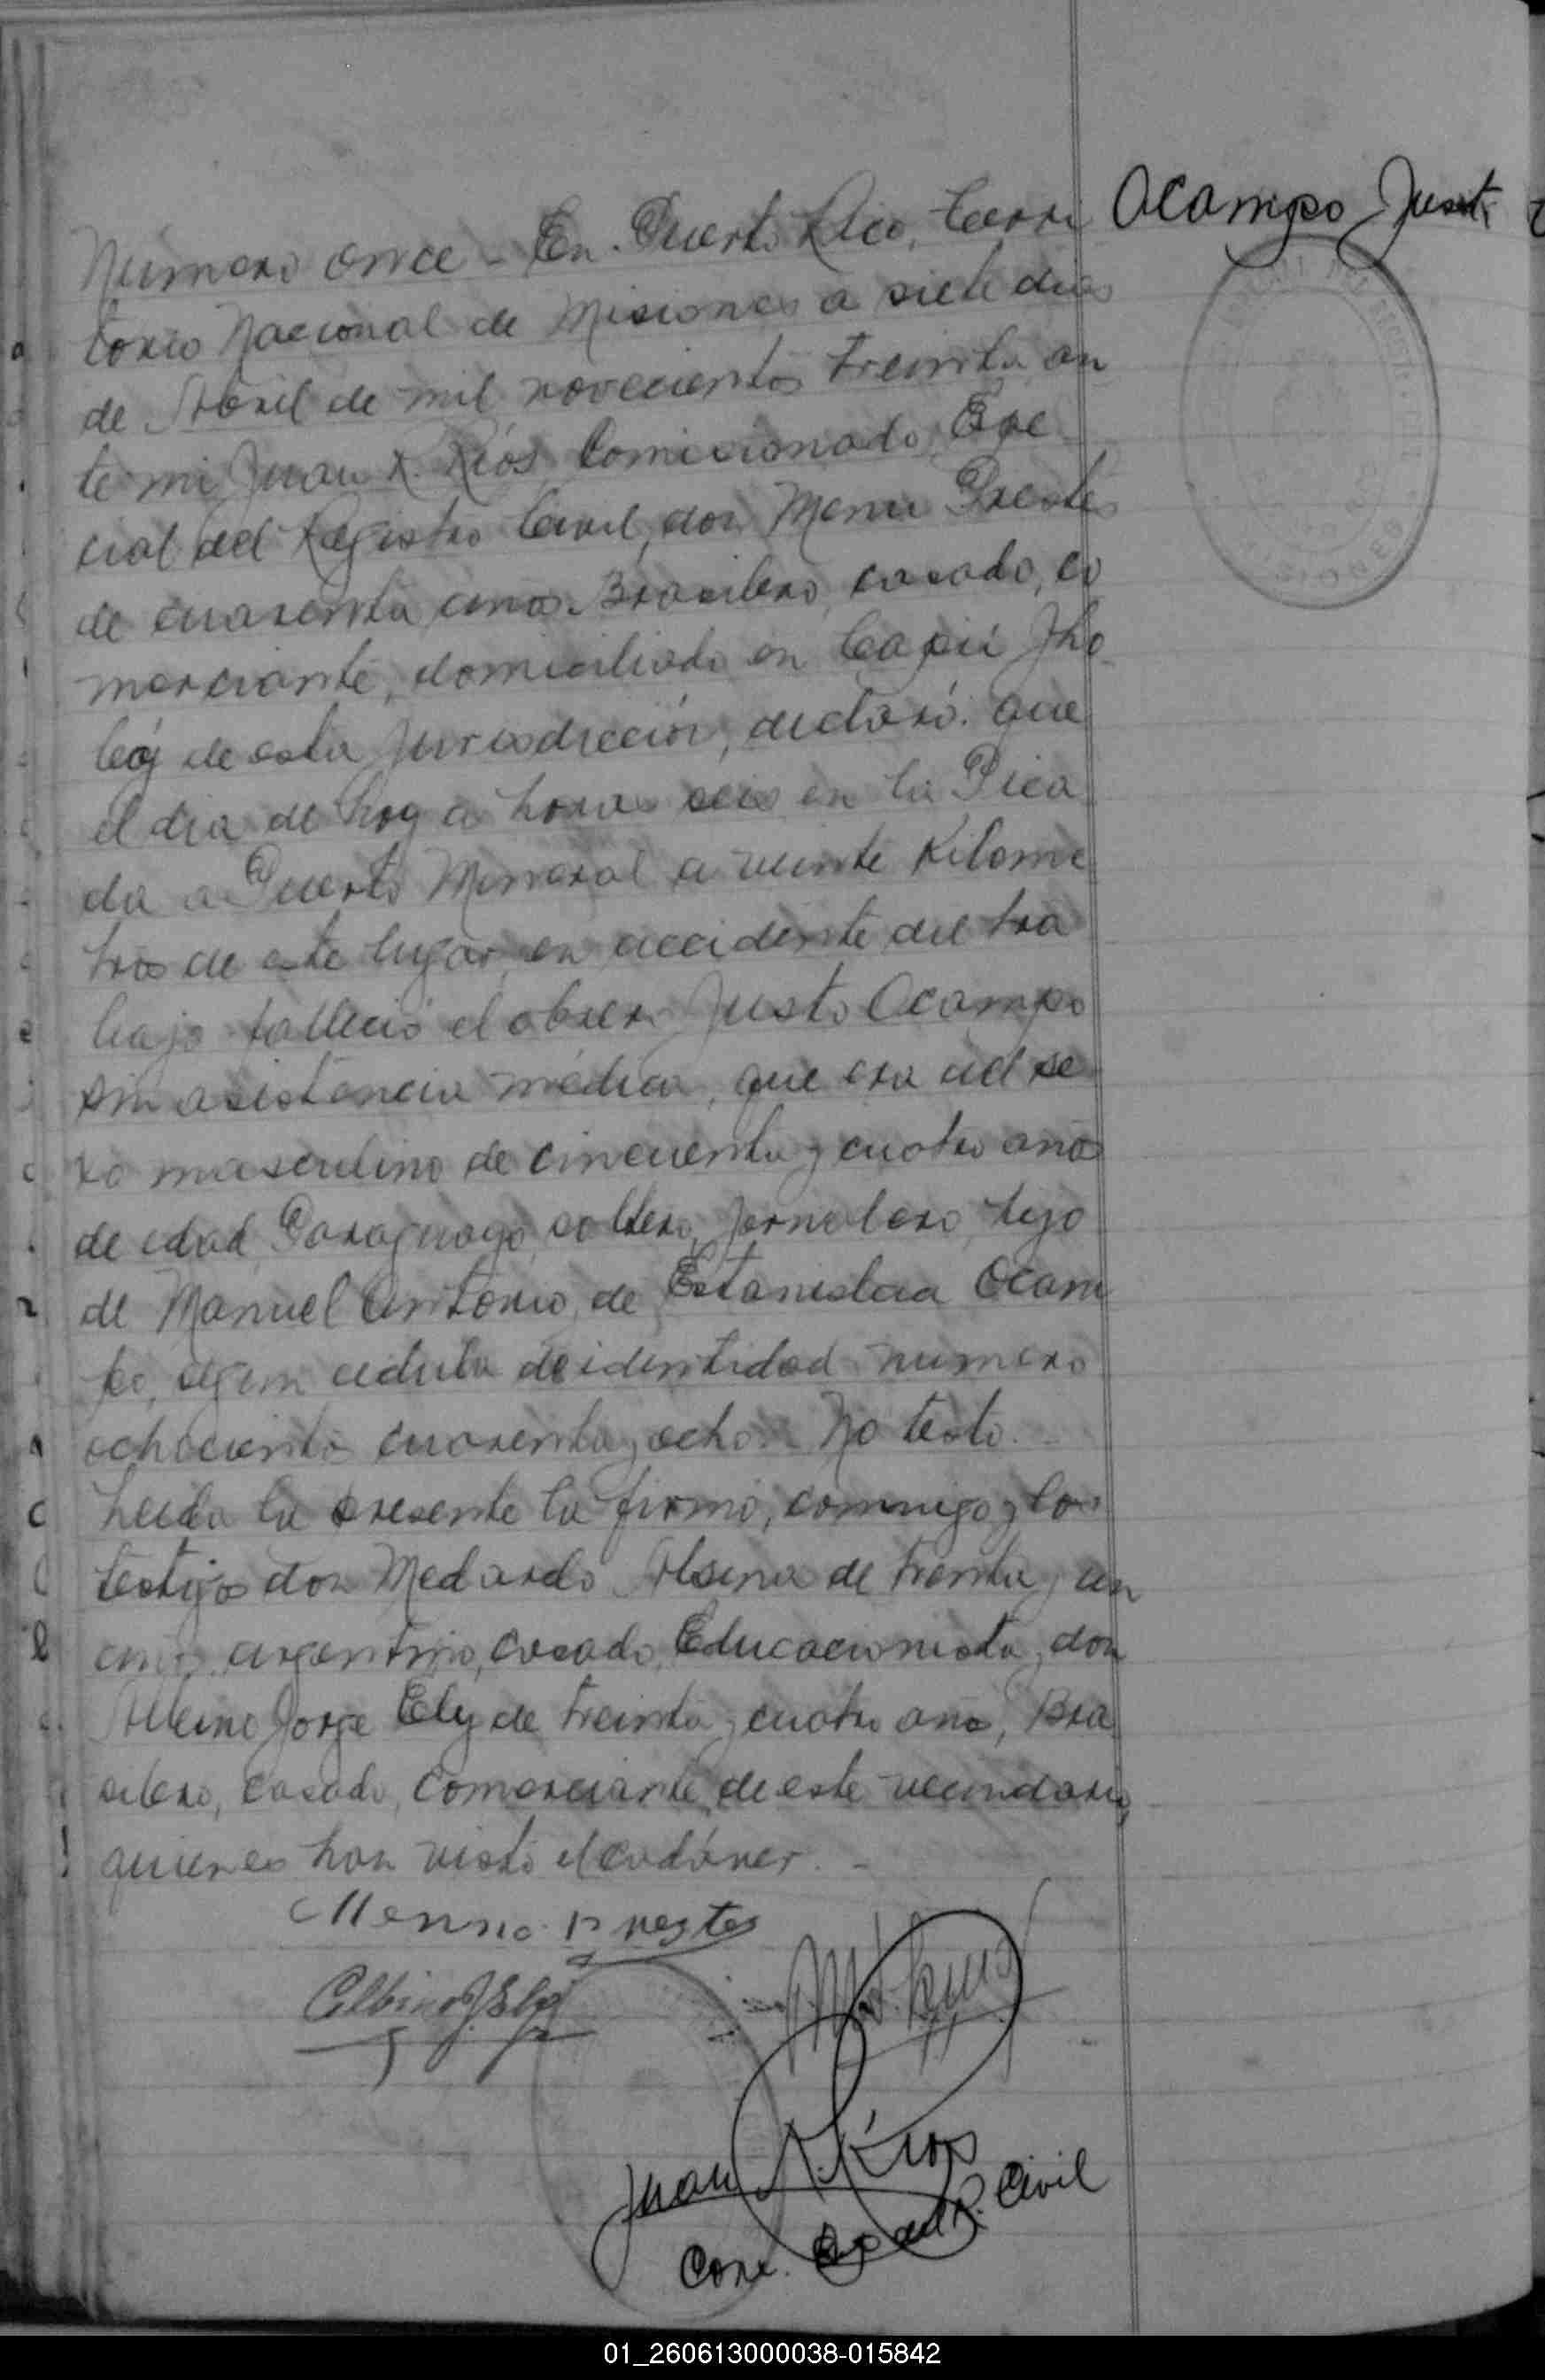 Ocampo Justo
Número once - En Puerto Rico, Terri
torio Nacional de Misiones a siete dias
de Abril de mil novecientos treinta, an
te mi Juan R. Ríos, Comicionado Espe
cial del Registro Civil, don Menu Prestes
de cuarenta años Brasilero, casado, co
merciante, domiciliado en Capii Jho
bay de esta jurisdiccion, declaró: que
el dia de hoy a horas seis en la Pica
da a Puerto Mineral a veinte Kilome
tros de este lugar, en accidente del tra
bajo falleció el obrero Justo Ocampo
sin asistencia médica, que era del se
xo masculino de cincuenta y cuatro años
de edad, Paraguayo, soltero, jornalero, hijo
de Manuel Antonio, de Estanislaa Ocam
po, segun cedula de identidad numero
ochociento cuarenta y ocho. No testo.
Leida la presente la firmó, conmigo y los
testigos don Medardo Alsina de treinta y un
años, argentino, casado, Educacionista, don
Albino Jorge Ely de treinta y cuatro años, Bra
silero, casado, comerciante, de este vecindario,
quienes han visto el cadáver. -
Menno Prestes
Albino J Ely
Juan R. Ríos
Com. Esp del R. Civil
01_260613000038-015842